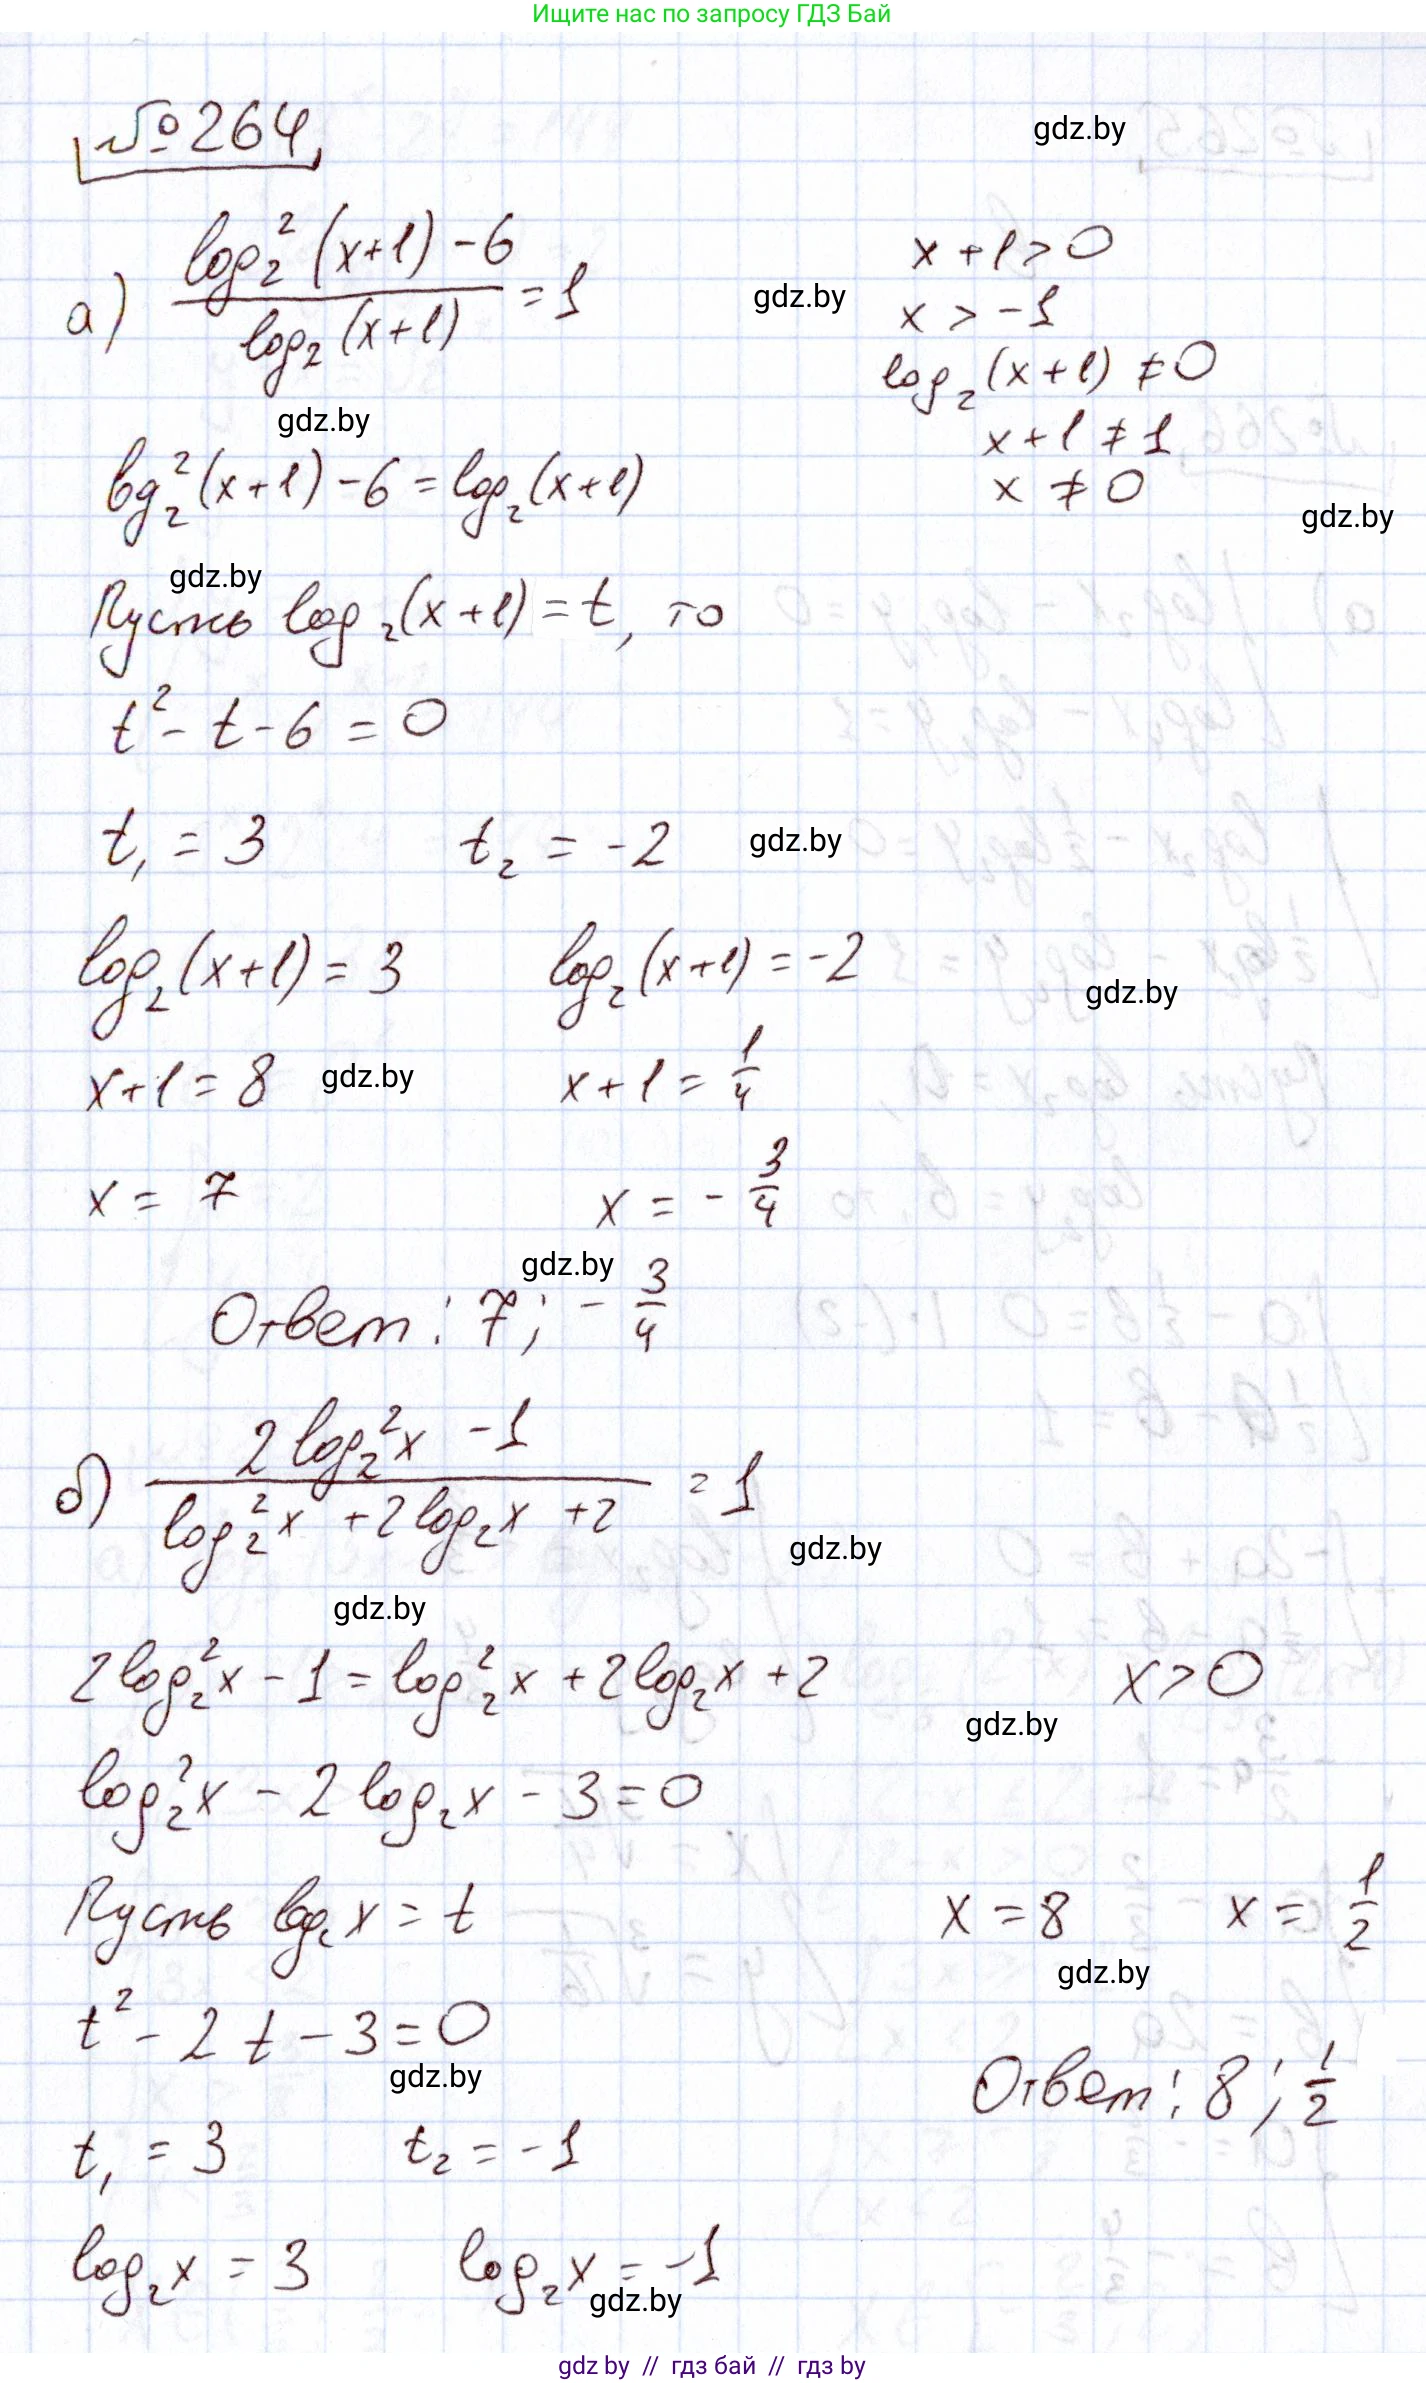 Ищите нас по запросу ГДЗ Бай
№264
gdz.by
а) (log₂²(x+1) - 6) / (log₂(x+1)) = 1
x + 1 > 0
gdz.by
x > -1
log₂(x+1) ≠ 0
gdz.by
x + 1 ≠ 1
log₂²(x+1) - 6 = log₂(x+1)
x ≠ 0
gdz.by
gdz.by
Пусть log₂(x+1) = t, то
t² - t - 6 = 0
t₁ = 3 t₂ = -2
gdz.by
log₂(x+1) = 3 log₂(x+1) = -2
gdz.by
x+1 = 8 x + 1 = 1/4
gdz.by
x = 7 x = - 3/4
gdz.by
Ответ: 7; - 3/4
б) (2log₂²x - 1) / (log₂²x + 2log₂x + 2) = 1
gdz.by
gdz.by
2log₂²x - 1 = log₂²x + 2log₂x + 2
x > 0
gdz.by
log₂²x - 2log₂x - 3 = 0
Пусть log₂x = t
x = 8 x = 1/2
gdz.by
t² - 2t - 3 = 0
gdz.by
Ответ: 8; 1/2
t₁ = 3 t₂ = -1
log₂x = 3 log₂x = -1
gdz.by
gdz by // гдз бай // гдз by